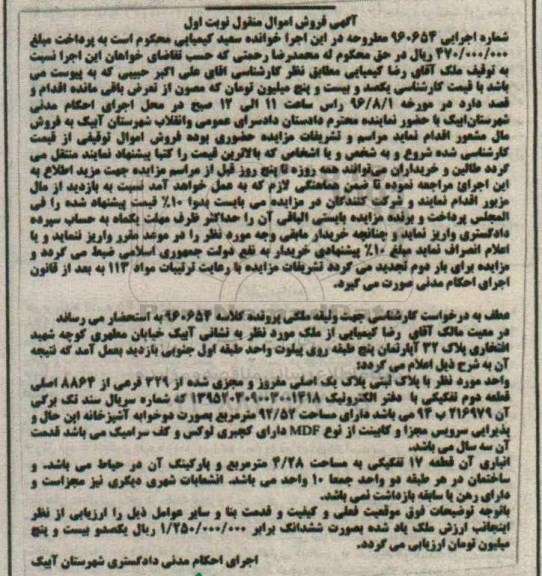 آگهی فروش اموال منقول نوبت اول
شماره اجرایی ۹۶۰۶۵۴ مطروحه در این اجرا خوانده سعید کیمیایی محکوم است به پرداخت مبلغ
۴۷۰/۰۰۰/۰۰۰ ریال در حق محکوم له محمدرضا رحمتی که حسب تقاضای خواهان این اجرا نسبت
به توقیف ملک آقای رضا کیمیایی مطابق نظر کارشناسی اقای علی اکبر حبیبی که به پیوست می
باشد با قیمت کارشناسی یکصد و بیست و پنج میلیون تومان که مصون از تعرض باقی مانده اقدام و
قصد دارد در مورخه ۹۶/۸/۱ راس ساعت ۱۱ الی ۱۲ صبح در محل اجرای احکام مدنی
شهرستان‌ابیک با حضور نماینده محترم دادستان دادسرای عمومی وانقلاب شهرستان آبیک به فروش
مال مشعور اقدام نماید مراسم و تشریفات مزایده حضوری بوده فروش اموال توقیفی از قیمت
کارشناسی شده شروع و به شخص و یا اشخاص که بالاترین قیمت را کتبا پیشنهاد نمایند منتقل می
گردد طالبین و خریداران می‌توانند همه روزه تا پنج روز قبل از مراسم مزایده جهت مزید اطلاع به
این اجرای مراجعه نموده تا ضمن هماهنگی لازم که به عمل خواهد آمد نسبت به بازدید از مال
مزبور اقدام نمایند و شرکت کنندگان در مزایده می بایست بدوا ۱۰٪ قیمت پیشنهاد شده را فی
المجلس پرداخت و برنده مزایده بایستی الباقی آن را حداکثر ظرف مهلت یکماه به حساب سپرده
دادگستری واریز نماید و چنانچه خریدار مابقی وجه مورد نظر را در موعد مقرر واریز ننماید و یا
اعلام انصراف نماید مبلغ ۱۰٪ پیشنهادی خریدار به نفع دولت جمهوری اسلامی ضبط می گردد و
مزایده برای بار دوم تجدید می گردد تشریفات مزایده با رعایت ترتیبات مواد ۱۱۳ به بعد از قانون
اجرای احکام مدنی صورت می گیرد.
عطف به درخواست کارشناسی جهت وثیقه ملکی پرونده کلاسه ۹۶۰۶۵۴ به استحضار می رساند
در معیت مالک آقای رضا کیمیایی از ملک مورد نظر به نشانی آبیک خیابان مطهری کوچه شهید
افتخاری پلاک ۳۲ آپارتمان پنج طبقه روی پیلوت واحد طبقه اول جنوبی بازدید بعمل آمد که نتیجه
آن به شرح ذیل اعلام می گردد:
واحد مورد نظر با پلاک ثبتی پلاک یک اصلی مفروز و مجزی شده از ۳۲۹ فرعی از ۸۸۶۴ اصلی
قطعه دوم تفکیکی با دفتر الکترونیک ۱۳۹۵۲۰۳۰۹۰۰۳۰۰۱۴۱۸ که شماره سریال سند تک برگی
آن ۲۱۶۹۷۹ ب ۹۴ می باشد دارای مساحت ۹۲/۵۲ مترمربع بصورت دوخوابه آشپزخانه اپن حال و
پذیرایی سرویس مجزا و کابینت از نوع MDF دارای کچبری لوکس و کف سرامیک می باشد قدمت
آن سه سال می باشد.
انباری آن قطعه ۱۷ تفکیکی به مساحت ۴/۲۸ مترمربع و پارکینگ آن در حیاط می باشد. و
ساختمان در هر طبقه دو واحد جمعا ۱۰ واحد می باشد. انشعابات شهری دیگری نیز مجزاست و
دارای رهن یا سابقه بازداشت نمی باشد.
باتوجه توضیحات فوق موقعیت فعلی و کیفیت و قدمت بنا و سایر عوامل ذیل را ارزیابی از نظر
اینجانب ارزش ملک یاد شده بصورت ششدانگ برابر ۱/۲۵۰/۰۰۰/۰۰۰ ریال یکصدو بیست و پنج
میلیون تومان ارزیابی می گردد.
اجرای احکام مدنی دادگستری شهرستان آبیک